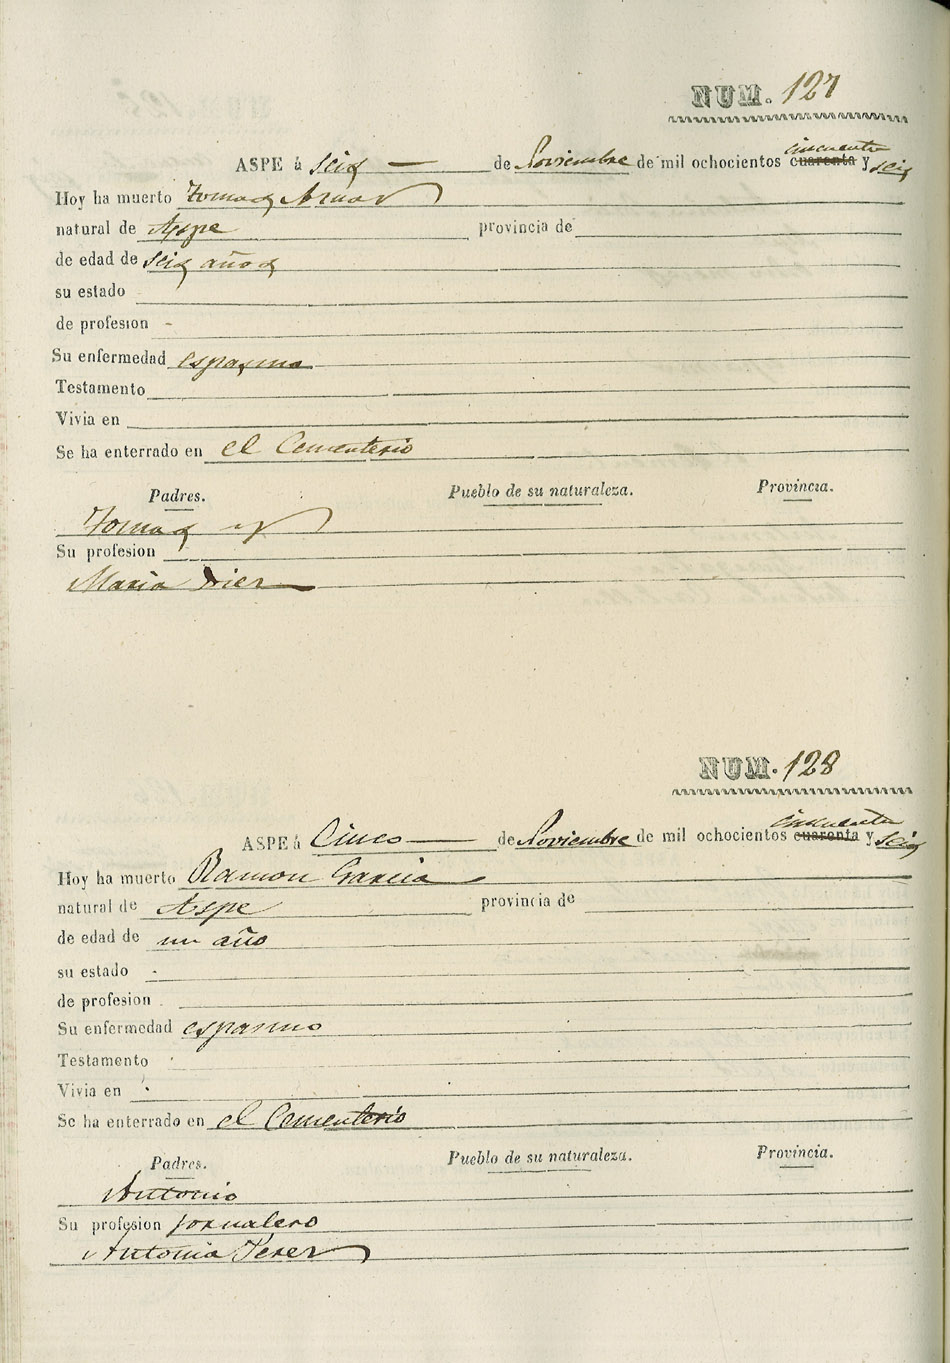 NUM. 127
ASPE á seis de Noviembre de mil ochocientos cuarenta cincuenta y seis
Hoy ha muerto Tomas
natural de Aspe provincia de
de edad de seis años
su estado
de profesion
Su enfermedad espasmo
Testamento
Vivia en
Se ha enterrado en el Cementerio
Padres. Pueblo de su naturaleza. Provincia.
Tomas
Su profesion
Maria
NUM. 128
ASPE á Cinco de Noviembre de mil ochocientos cuarenta cincuenta y seis
Hoy ha muerto Ramon Garcia
natural de Aspe provincia de
de edad de un año
su estado
de profesion
Su enfermedad espasmo
Testamento
Vivia en
Se ha enterrado en el Cementerio
Padres. Pueblo de su naturaleza. Provincia.
Antonio
Su profesion jornalero
Antonia Perez